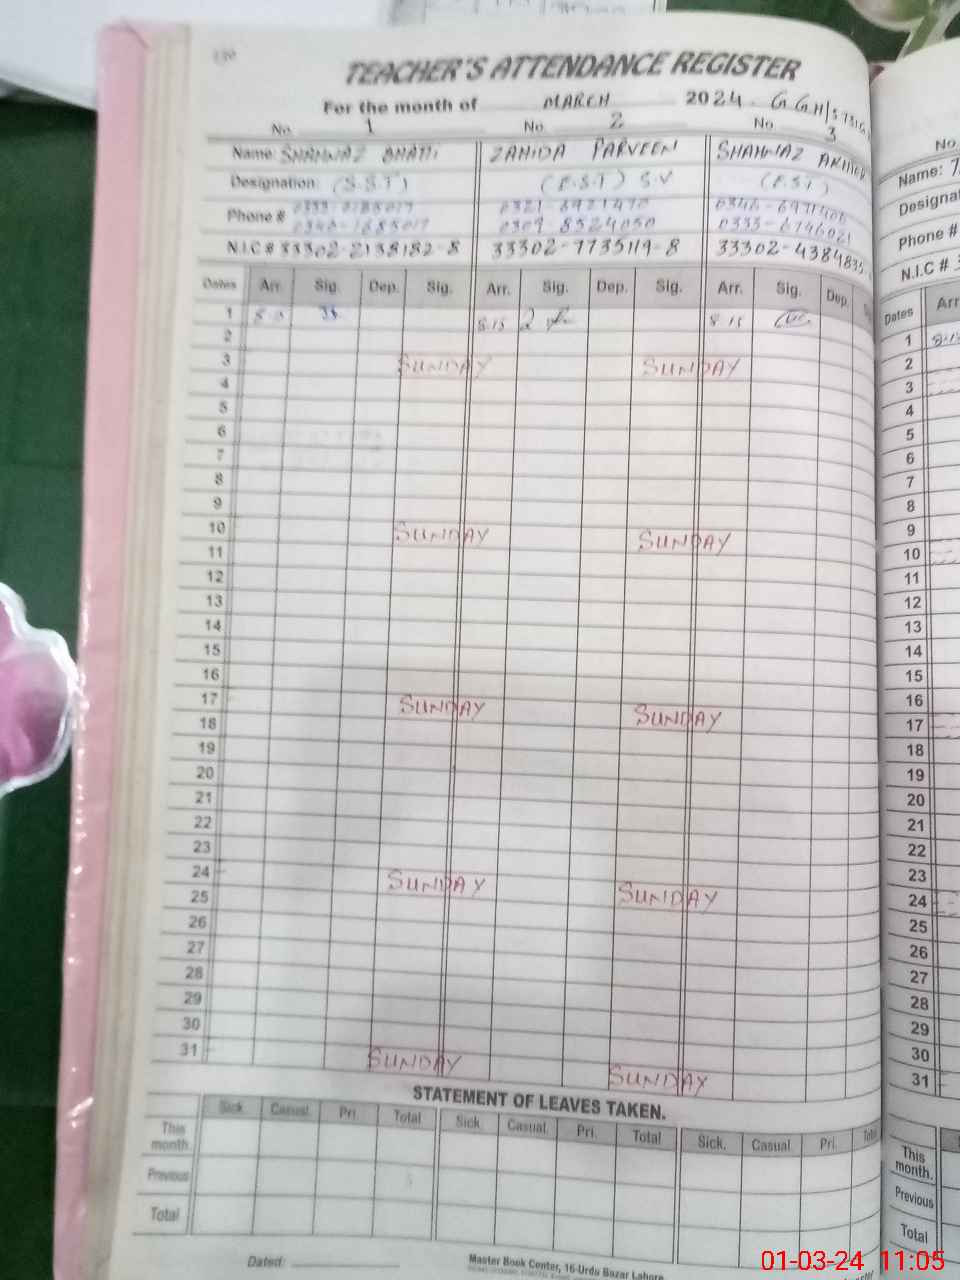 TEACHER'S ATTENDANCE REGISTER
For the month of MARCH 2024. G.G.H/S
No. 1 No. 2 No. 3
Name: SHAHNAZ BHATTI ZAHIDA PARVEEN SHAHNAZ AKHTER
Designation: (S.S.T) (E.S.T) S.V (E.S.T)
Phone #
N.I.C # 33302-2138182-8 33302-7735119-8 33302-4384835
Dates Arr. Sig. Dep. Sig. Arr. Sig. Dep. Sig. Arr. Sig. Dep.
1 8.15 8.15
2
3 SUNDAY SUNDAY
4
5
6
7
8
9
10 SUNDAY SUNDAY
11
12
13
14
15
16
17 SUNDAY SUNDAY
18
19
20
21
22
23
24 SUNDAY SUNDAY
25
26
27
28
29
30
31 SUNDAY SUNDAY
STATEMENT OF LEAVES TAKEN.
Sick Casual. Pri. Total Sick. Casual. Pri. Total Sick. Casual. Pri. Total
This month.
Previous
Total
Dated:
Master Book Center, 16-Urdu Bazar Lahore
No
Name:
Designat
Phone #
N.I.C #
Dates Arr
1
2
3
4
5
6
7
8
9
10
11
12
13
14
15
16
17
18
19
20
21
22
23
24
25
26
27
28
29
30
31
This month.
Previous
Total
01-03-24 11:05